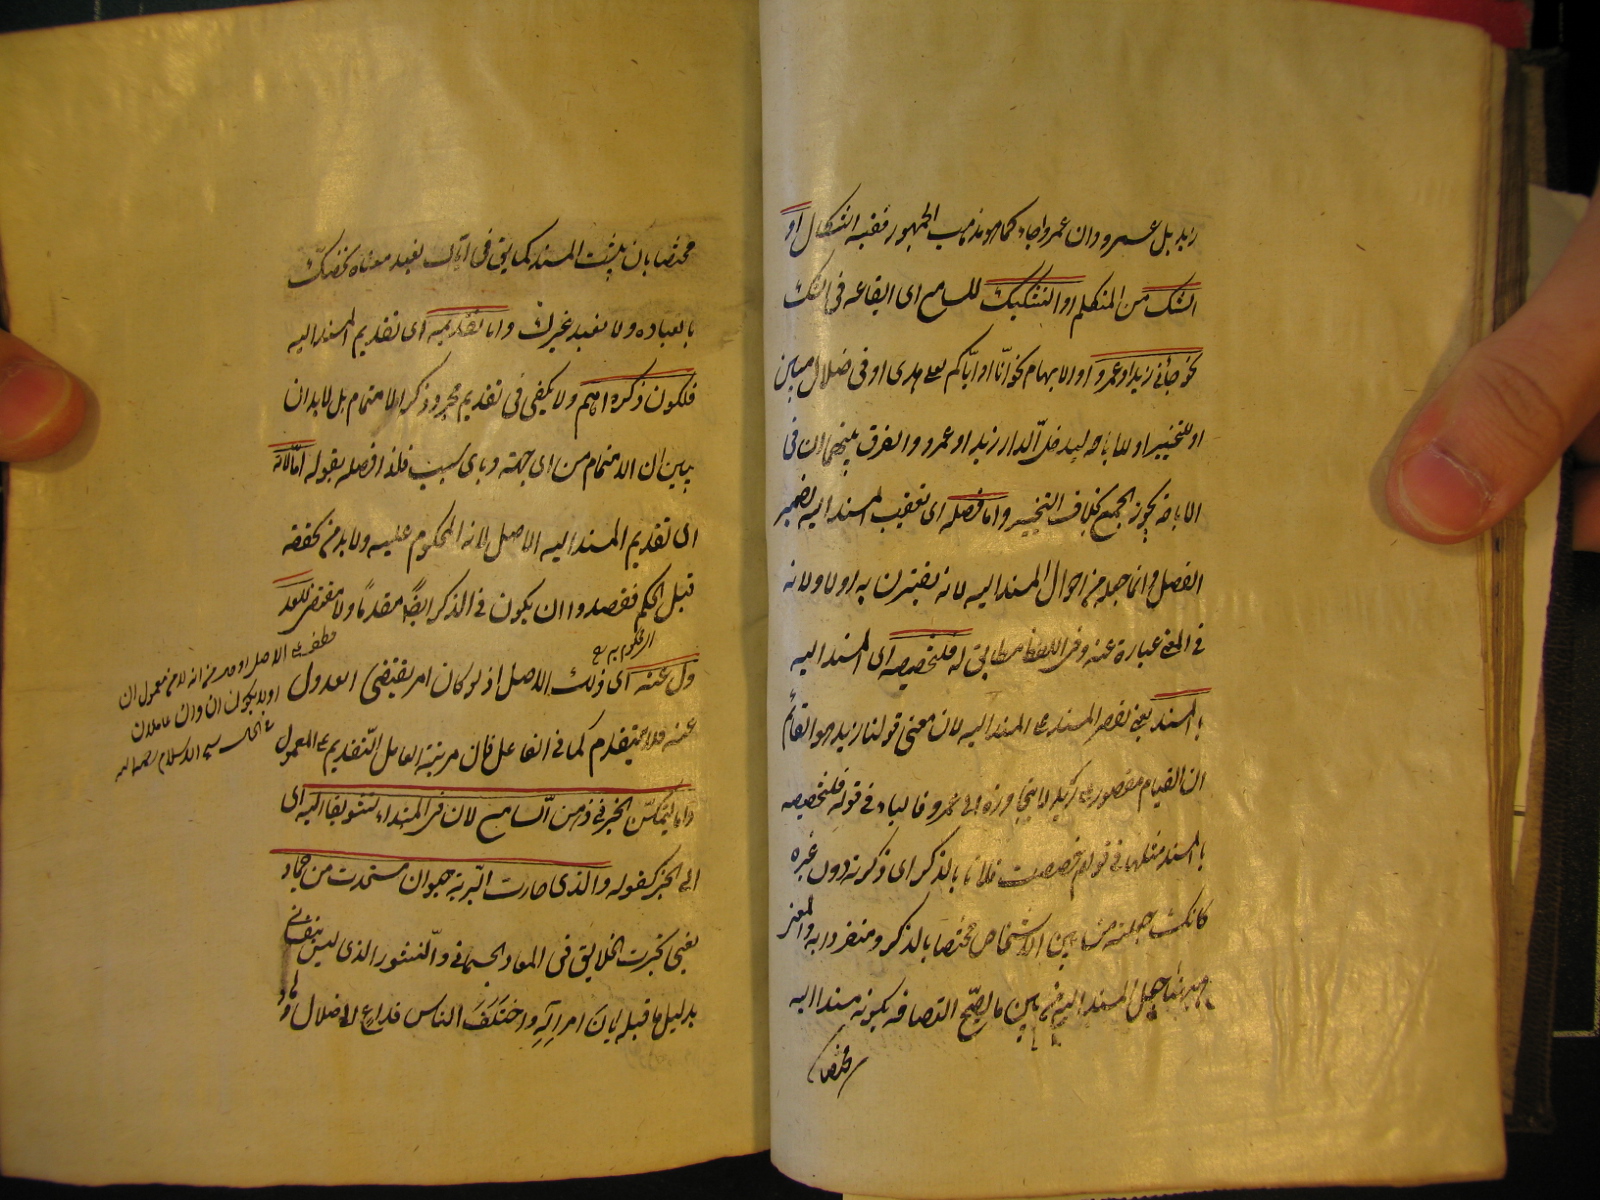 زيد بل عمرو وان عمروا جاء كما هو مذهب الجمهور ففيه اشكال او
الشك من المتكلم او التشكيك للسامع اى ايقاعه فى الشك
نحو جائنى زيد او عمرو او الابهام نحو انا او اياكم لعلى هدى او فى ضلال مبين
او للتخيير او للاباحة ليدخل الدار زيد او عمرو والفرق بينهما ان فى
الاباحة يجوز الجمع بخلاف التخيير واما فصله اى تعقيب المسند اليه بضمير
الفصل وانما جعله من احوال المسند اليه لانه يقترن به اولا ولانه
فى المعنى عبارة عنه وفى اللفظ مطابق له فلتخصيصه اى المسند اليه
بالمسند يعنى لقصر المسند على المسند اليه لان معنى قولنا زيد هو القائم
ان القيام مقصور على زيد لا يتجاوزه الى عمرو فالباء فى قوله فلتخصيصه
بالمسند مثلها فى قولهم خصصت فلانا بالذكر اى ذكرته دون غيره
كانك جعلته من بين الاشخاص مختصا بالذكر ومتفردا به والمعنى
ههنا جعل المسند اليه من بين ما يصح اتصافه بكونه مسندا اليه
مختصا
مختصا بان يثبت له المسند كما يقال فى اياك نعبد معناه نخصك
بالعبادة ولا نعبد غيرك واما تقديمه اى تقديم المسند اليه
فلكون ذكره اهم ولا يكفى فى تقديم مجرد ذكر الاهتمام بل لا بد ان
يبين ان الاهتمام من اى جهة وباى سبب فلذا فصله بقوله اما لانه
اى تقديم المسند اليه الاصل لانه المحكوم عليه ولا بد من تحققه
قبل الحكم فقصدوا ان يكون فى الذكر ايضا مقدما ولا مقتضى للعد
اى المحكوم به
ول عنه اى ذلك الاصل اذ لو كان امر يقتضى العدول
عنه فلا يتقدم كما فى الفاعل فان مرتبة العامل التقديم على المعمول
واما ليتمكن الخبر فى ذهن السامع لان فى المبتداء تشويقا اليه اى
الى الخبر كقوله والذى حارت البرية فيه حيوان مستحدث من جماد
يعنى تحيرت الخلايق فى المعاد الجسمانى والنشور الذى ليس بنفسانى
بدليل ما قبله بان امر الآله واختلف الناس فداع الى ضلال وهاد